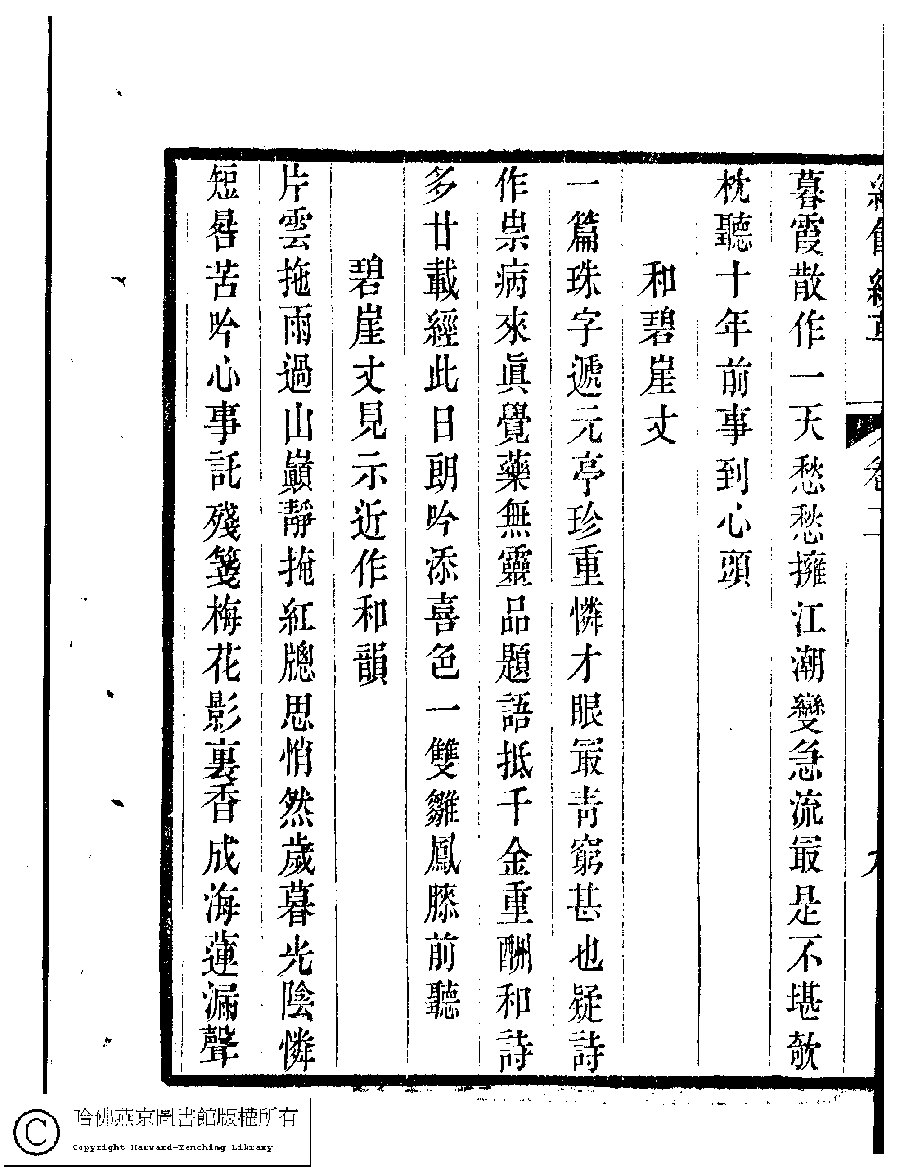 卷二
暮霞散作一天愁愁擁江潮變急流最是不堪欹
枕聽十年前事到心頭
和碧崖丈
一篇珠字遞元亭珍重憐才眼最青窮甚也疑詩
作祟病來眞覺藥無靈品題語抵千金重酬和詩
多廿載經此日朗吟添喜色一雙雛鳳膝前聽
碧崖丈見示近作和韻
片雲拖雨過山巔靜掩紅牕思悄然歲暮光陰憐
短晷苦吟心事託殘箋梅花影裏香成海蓮漏聲
哈佛燕京圖書館版權所有
Copyright Harvard-Yenching Library